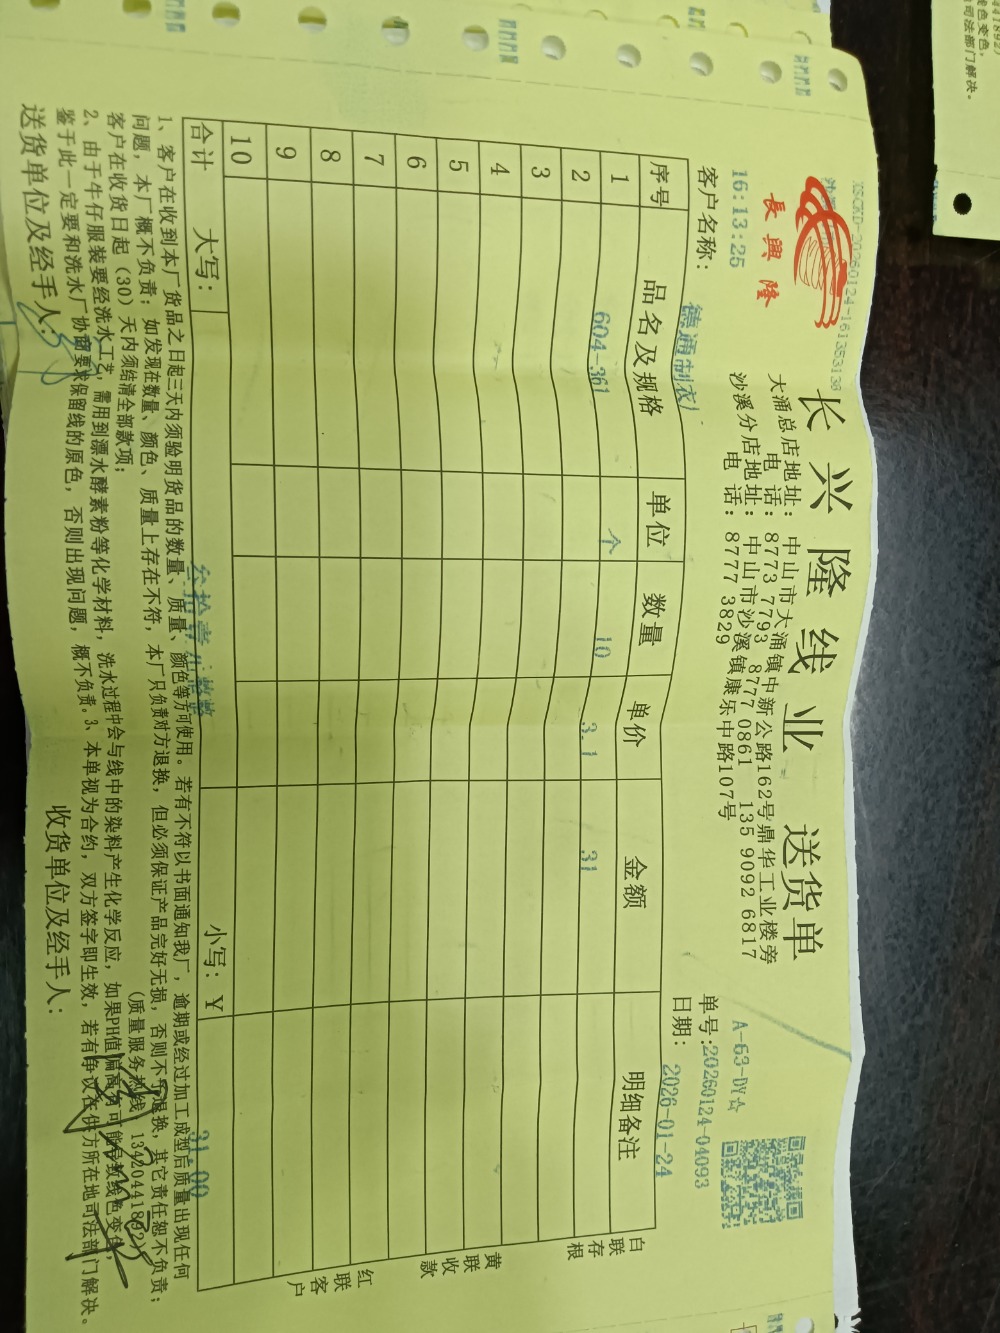 XSCKD-20260124-161353138
長興隆
长兴隆线业 送货单
大涌总店地址：中山市大涌镇中新公路162号鼎华工业楼旁
电话：8773 7793 8777 0861 135 9092 6817
沙溪分店地址：中山市沙溪镇康乐中路107号
电话：8777 3829
A-63-DY☆
16:13:25
单号：20260124-04093
客户名称：德通制衣
日期：2026-01-24
序号 品名及规格 单位 数量 单价 金额 明细备注
1 604-361 个 10 3.1 31
2
3
4
5
6
7
8
9
10
合计 大写：叁拾壹元整 小写：￥31.00
白联存根
黄联收款
红联客户
1、客户在收到本厂货品之日起三天内须验明货品的数量、质量、颜色等方可使用。若有不符以书面通知我厂，逾期或经过加工成型后质量出现任何
问题，本厂概不负责；如发现在数量、颜色、质量上存在不符，本厂只负责对方退换，但必须保证产品完好无损，否则不予退换，其它责任恕不负责；
客户在收货日起（30）天内须结清全部款项；（质量服务热线：13420441892）
2、由于牛仔服装要经洗水工艺，需用到漂水酵素粉等化学材料，洗水过程中会与线中的染料产生化学反应，如果PH值偏高有可能导致线色变色，
鉴于此一定要和洗水厂协商要求保留线的原色，否则出现问题，概不负责。3、本单视为合约，双方签字即生效，若有争议在供方所在地司法部门解决。
送货单位及经手人：
收货单位及经手人：
4418927
线色变色，
司法部门解决。